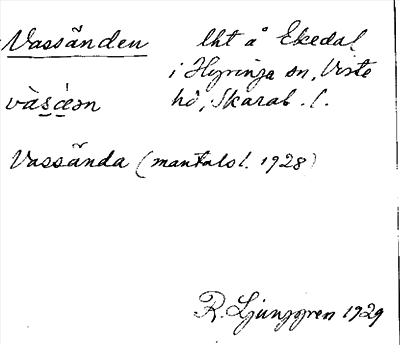 Vassänden lht å Ekedal
i Hyringa sn, Viste
vàsä̀ən hd, Skarab. l.
Vassända (mantalsl. 1928)
R. Ljunggren 1929